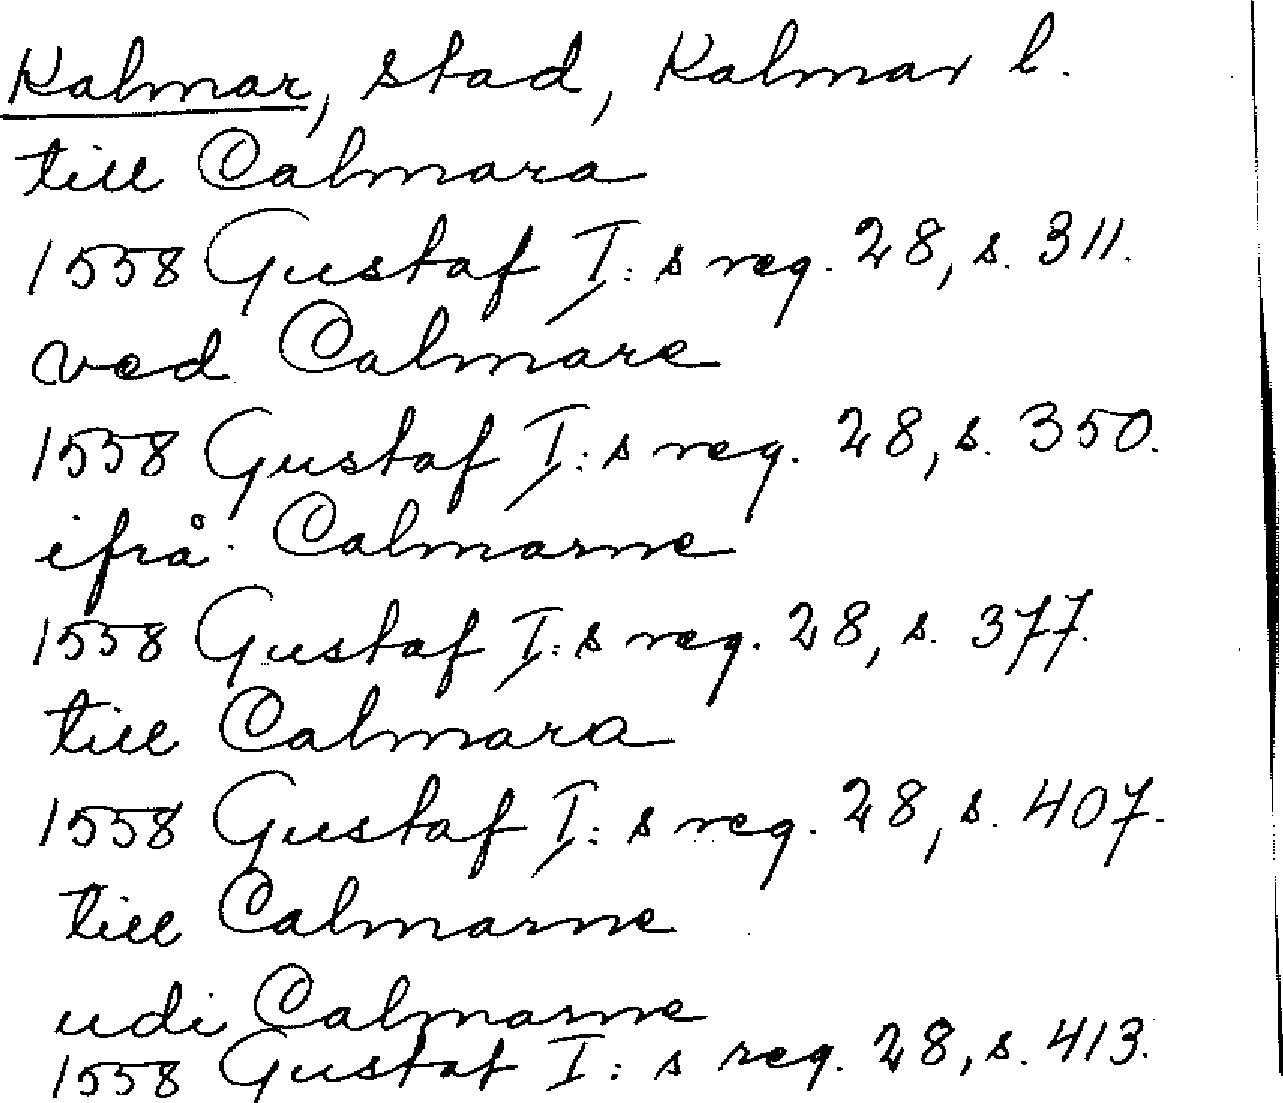 Kalmar, stad, Kalmar l.
till Calmara
1558 Gustaf I:s reg. 28, s. 311.
ved Calmare
1558 Gustaf I:s reg. 28, s. 350.
ifrå Calmarne
1558 Gustaf I:s reg. 28, s. 377.
till Calmara
1558 Gustaf I:s reg. 28, s. 407.
till Calmarne
udi Calmarne
1558 Gustaf I:s reg. 28, s. 413.